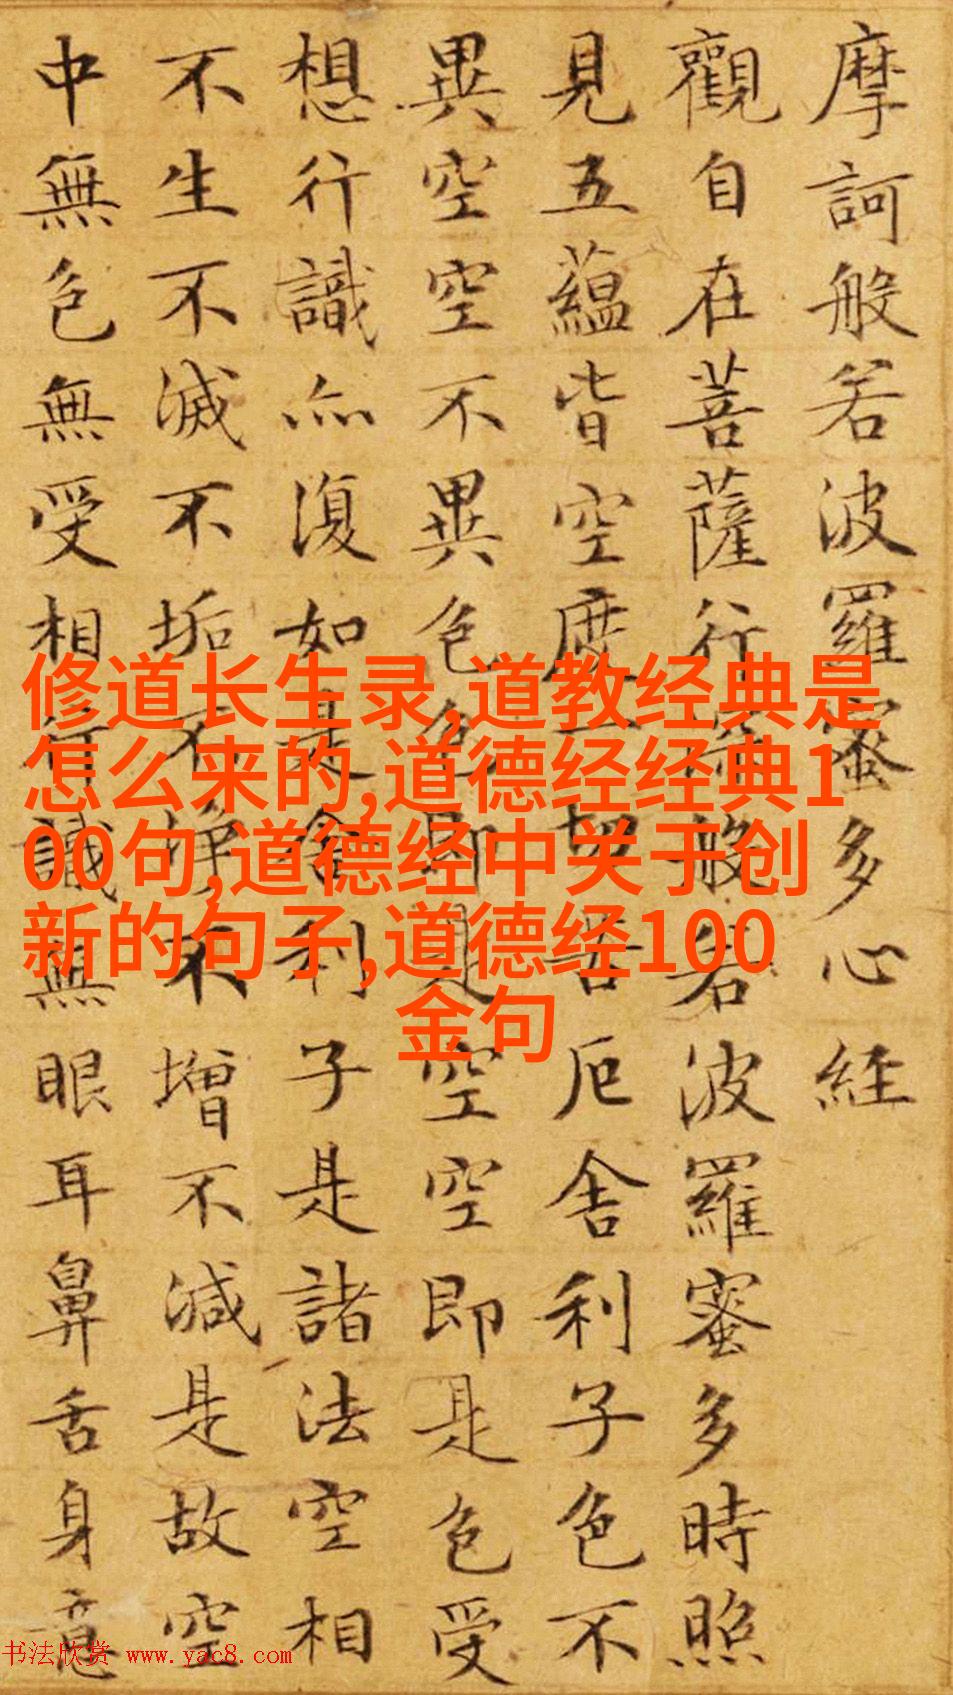 摩訶般若波羅蜜多心經
觀自在菩薩行深般若波羅蜜多時照
見五蘊皆空度一切苦厄舍利子色不
異空空不異色色即是空空即是色受
想行識亦復如是舍利子是諸法空相
不生不滅不垢不淨不增不減是故空
中無色無受想行識無眼耳鼻舌身意
修道长生录,道教经典是
怎么来的,道德经经典1
00句,道德经中关于创
新的句子,道德经100
金句
书法欣赏 www.yac8.com